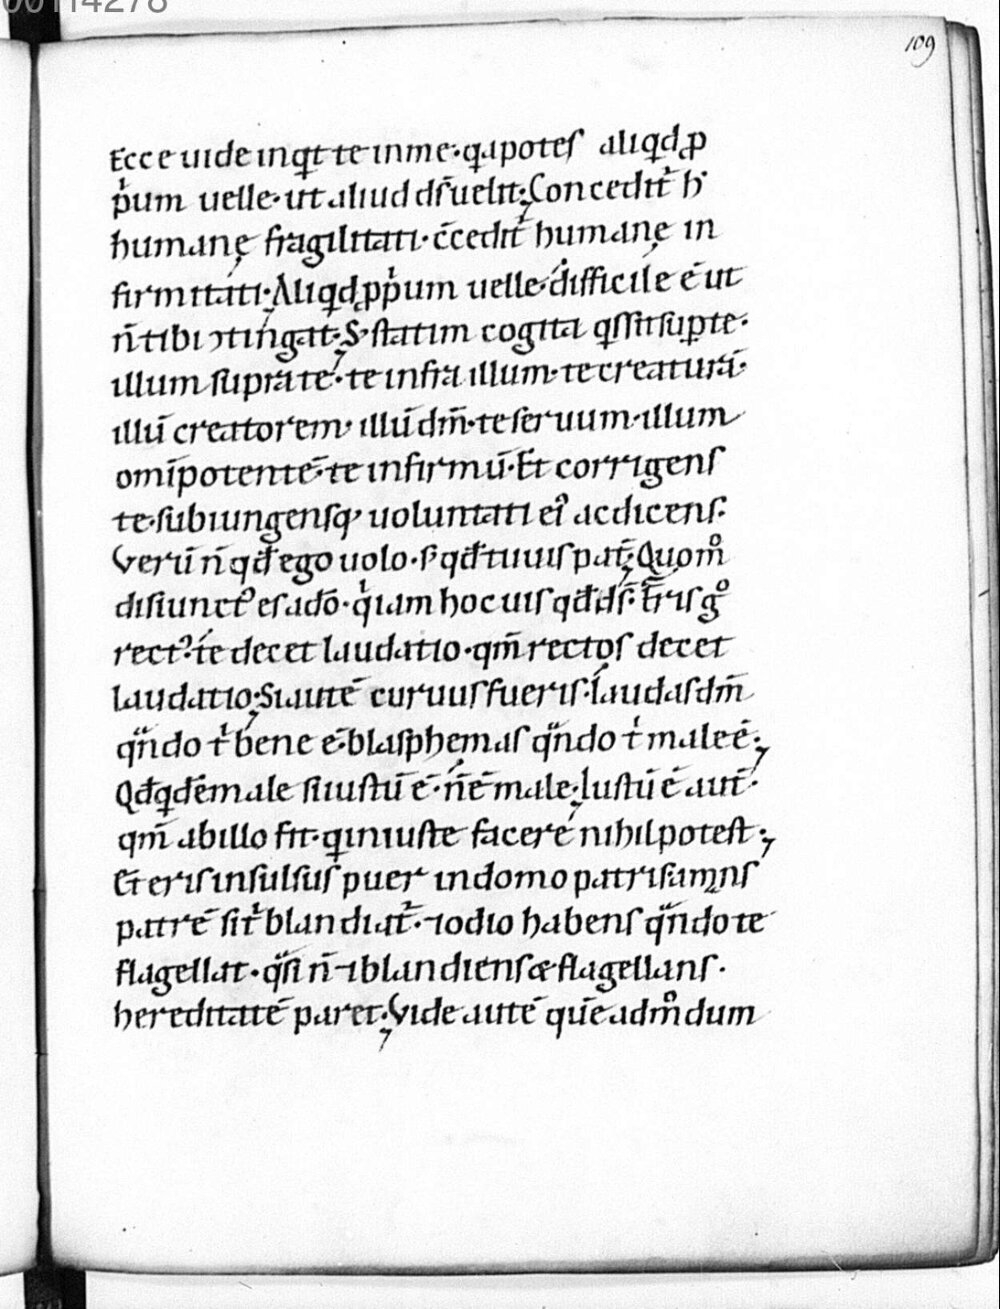 00114278
109
Ecce uide inqt te in me· qa potes aliqd ꝓ
pͥum uelle· ut aliud dſ̄ uelit; Conceditͬ h̓
humanę fragilitati· c̄ceditͬ humanę in
firmitati; Aliqd ꝓpͥum uelle· difficile ē ut
n̄ tibi ɔtingat; S; statim cogita qs sit sup̱ te·
illum supra te· te infra illum· te creaturā·
illū creatorem· illū dm̄· te seruum· illum
omīpotentē· te infirmū· Et corrigens
te· subiungensq; uoluntati ei᾿ ac dicens·
Verū n̄ qđ ego uolo· s; qđ tu uis pat̄; Quom̊
disiunct᾿ es a dō· qͥ iam hoc uis qđ ds̄· Eͬris g̊
rect᾿· te decet laudatio· qm̄ rectos decet
laudatio; Si autē curuus fueris· laudas dm̄
qͣndo tͥ bene ē· blasphemas qͣndo tͥ male ē;
Qđ qdē male si iustū ē· n̄ ē male; Iustū ē aut̄·
qm̄ ab illo fit· qi iniuste facere nihil potest;
Et eris insulsus puer in domo patris amans
patrē si tͥ blanditͬ· ⁊ odio habens qͣndo te
flagellat· qͣsi n̄ ⁊ blandiens & flagellans·
hereditatē paret; Vide autē quēadm̊dum